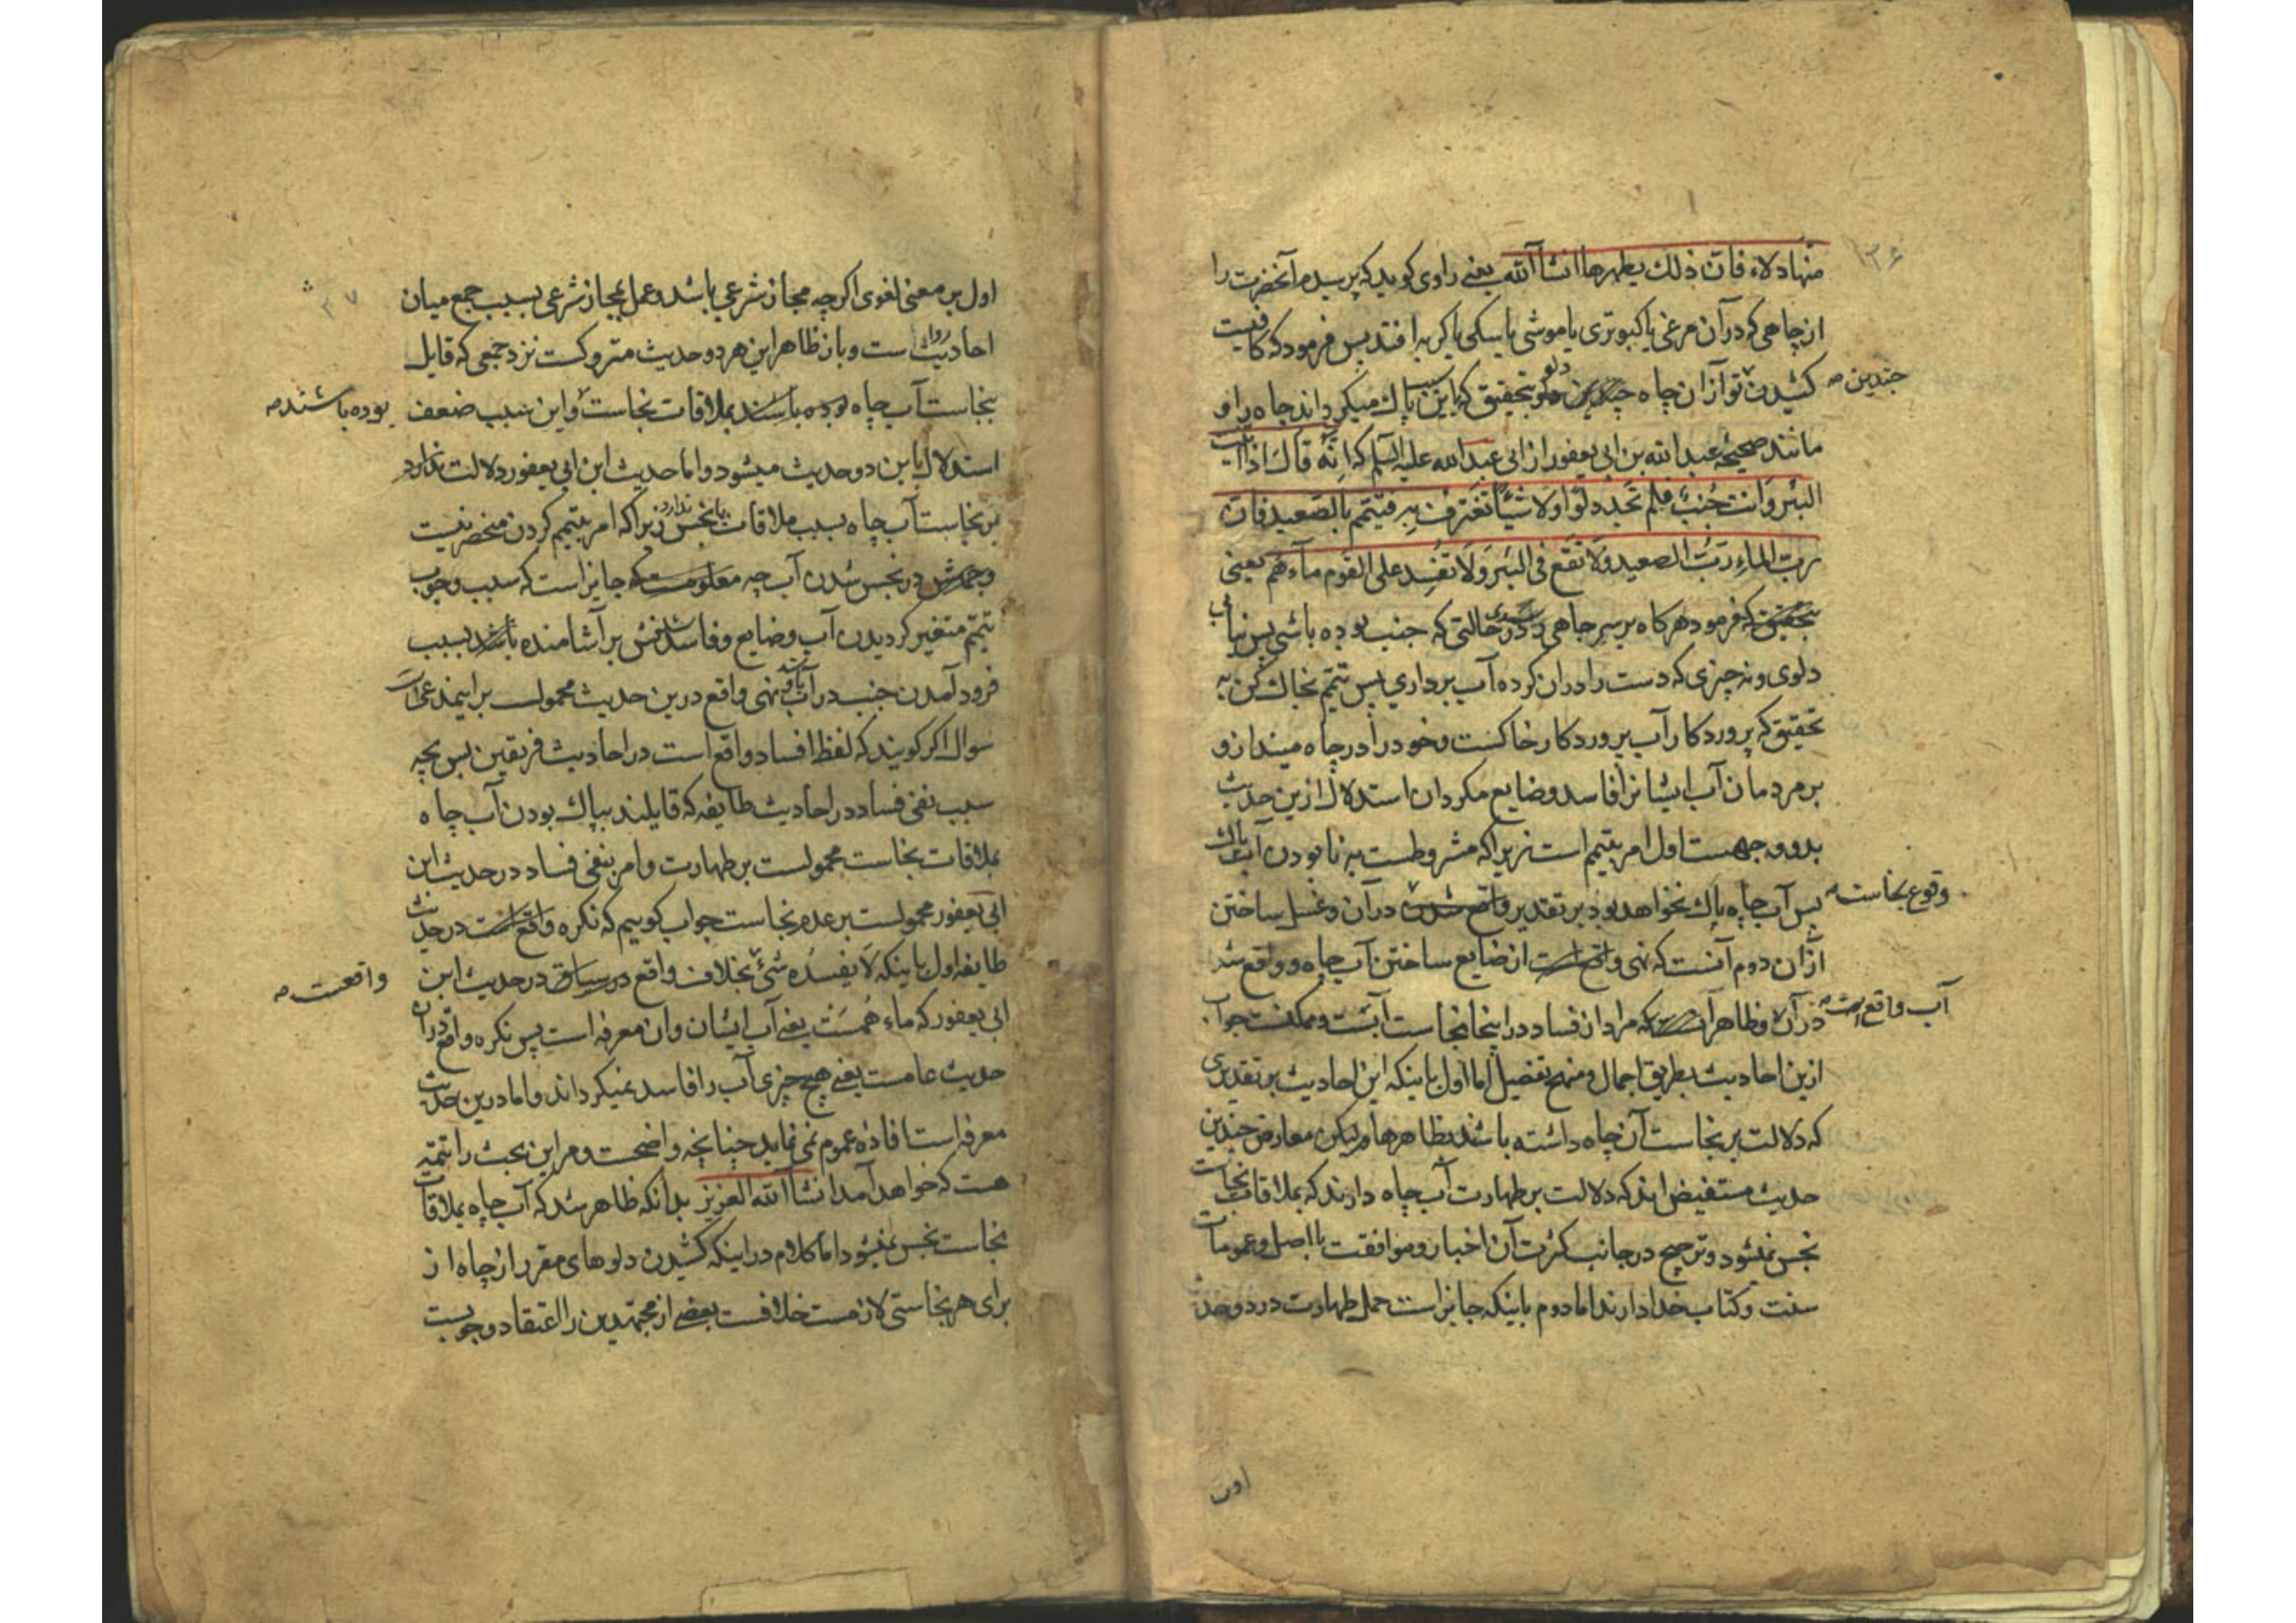 ۱۳۶
منها دلاء فان ذلك يطهرها انشاآ الله يعنے راوی کويد که پرسيدم آنحضرت را
از چاهی که در آن مرغی يا کبوتری يا موشی يا سکی يا کربه افتد پس فرمود که کافيست
کشيدن تو از ان چاه دلو بتحقيق که اين سبب پاک ميکرداند چاه را و
چندين صح
مانند صحيحه عبد الله بن ابی يعفور از ابی عبد الله عليه السلم که انّه قال اذا اتيت
البئر وانت جُنب فلم تجد دلوًا ولا شيئًا تغترف به فتيمّم بالصّعيد فان
ربّ الماءِ ربّ الصعيد ولا تقع فی البئر ولا تفسد علی القوم ماءهم يعنی
بتحقيق که فرمود هرکاه بر سر چاهی رسيدی در حالتی که جنب بوده باشی پس نيابی
دلوی و نه چيزی که دست را در ان کرده آب برداری پس تيمّم بخاک کن به
تحقيق که پروردکار آب پروردکار خاکست و خود را در چاه مينداز و
بر مردمان آب ايشانرا فاسد و ضايع مکردان استدلال ازين حديث
بدو وجهست اول امر بتيمم است زيرا که مشروطست به نابودن آب پاک
پس آب چاه پاک نخواهد بود بر تقدير واقع شدن در آن و غسل ساختن
وقوع نجاست صح
از ان دوم آنست که نهی واقع است از ضايع ساختن آب چاه و واقع شد
در آن و ظاهر آن که مراد از فساد در اينجا نجاست آبست و ممکنست جواب
آب واقع است صح
ازين احاديث بطريق اجمال و منهج تفصيل اما اول باينکه اين احاديث بر تقديری
که دلالت بر نجاست آن چاه داشته باشند بظاهرها وليکن معارض چندين
حديث مستفيض اند که دلالت بر طهارت آب چاه دارند که بملاقات نجاست
نجس نميشود و ترجيح در جانب کثرت آن اخبار و موافقت با اصل و عمومات
سنت و کتاب خدا دارند اما دوم باينکه جايز است حمل طهارت در دو حديث
اول
۳۷
اول بر معنی لغوی اکرچه مجاز شرعی باشد و عمل بمجاز شرعی بسبب جمع ميان
احاديث رواست و باز ظاهر اين هر دو حديث متروکست نزد جمعی که قايل
بنجاست آب چاه بوده باشند بملاقات نجاست و اين سبب ضعف
بوده باشند صح
استدلال باين دو حديث ميشود و اما حديث ابن ابی يعفور دلالت ندارد
بر نجاست آب چاه بسبب ملاقات با نجس ندارد زيرا که امر بتيمم کردن منحصر نيست
در نجس شدن آب چه جايز است که سبب وجوب
تيمّم متغير کرديدن آب و ضايع و فاسد شدنش بر آشامنده باشد بسبب
فرود آمدن جنب در آب باشد و نهی واقع درين حديث محمولست براين مدعی است
سوال اکر کويند که لفظ افساد واقع است در احاديث فريقين پس بچه
سبب نفی فساد در احاديث طايفه که قايلند بپاک بودن آب چاه
بملاقات نجاست محمولست بر طهارت و امر بنفی فساد در حديث ابن
ابی يعفور محمولست بر عدم نجاست جواب کوييم که نکره واقع است در حديث
طايفه اول باينکه لا يفسده شئ بخلاف واقع در سياق در حديث ابن
واقعست صح
ابی يعفور که ماءهمست يعنے آب ايشان و ان معرفه است پس نکره واقع در ان
حديث عامست يعنے هيچ چيزی آب را فاسد نميکرداند و اما درين حديث
معرفه است افاده عموم نمی نمايد چنانچه واضحست و مر اين بحث را تتمّه
هست که خواهد آمد انشاآ الله العزيز بدانکه ظاهر شد که آب چاه بملاقات
نجاست نجس نميشود اما کلام در اينکه کشيدن دلوهای مقرر از چاه از
برای هر نجاستی لازمست خلافست بعضے از مجتهدين را اعتقاد وجوبست